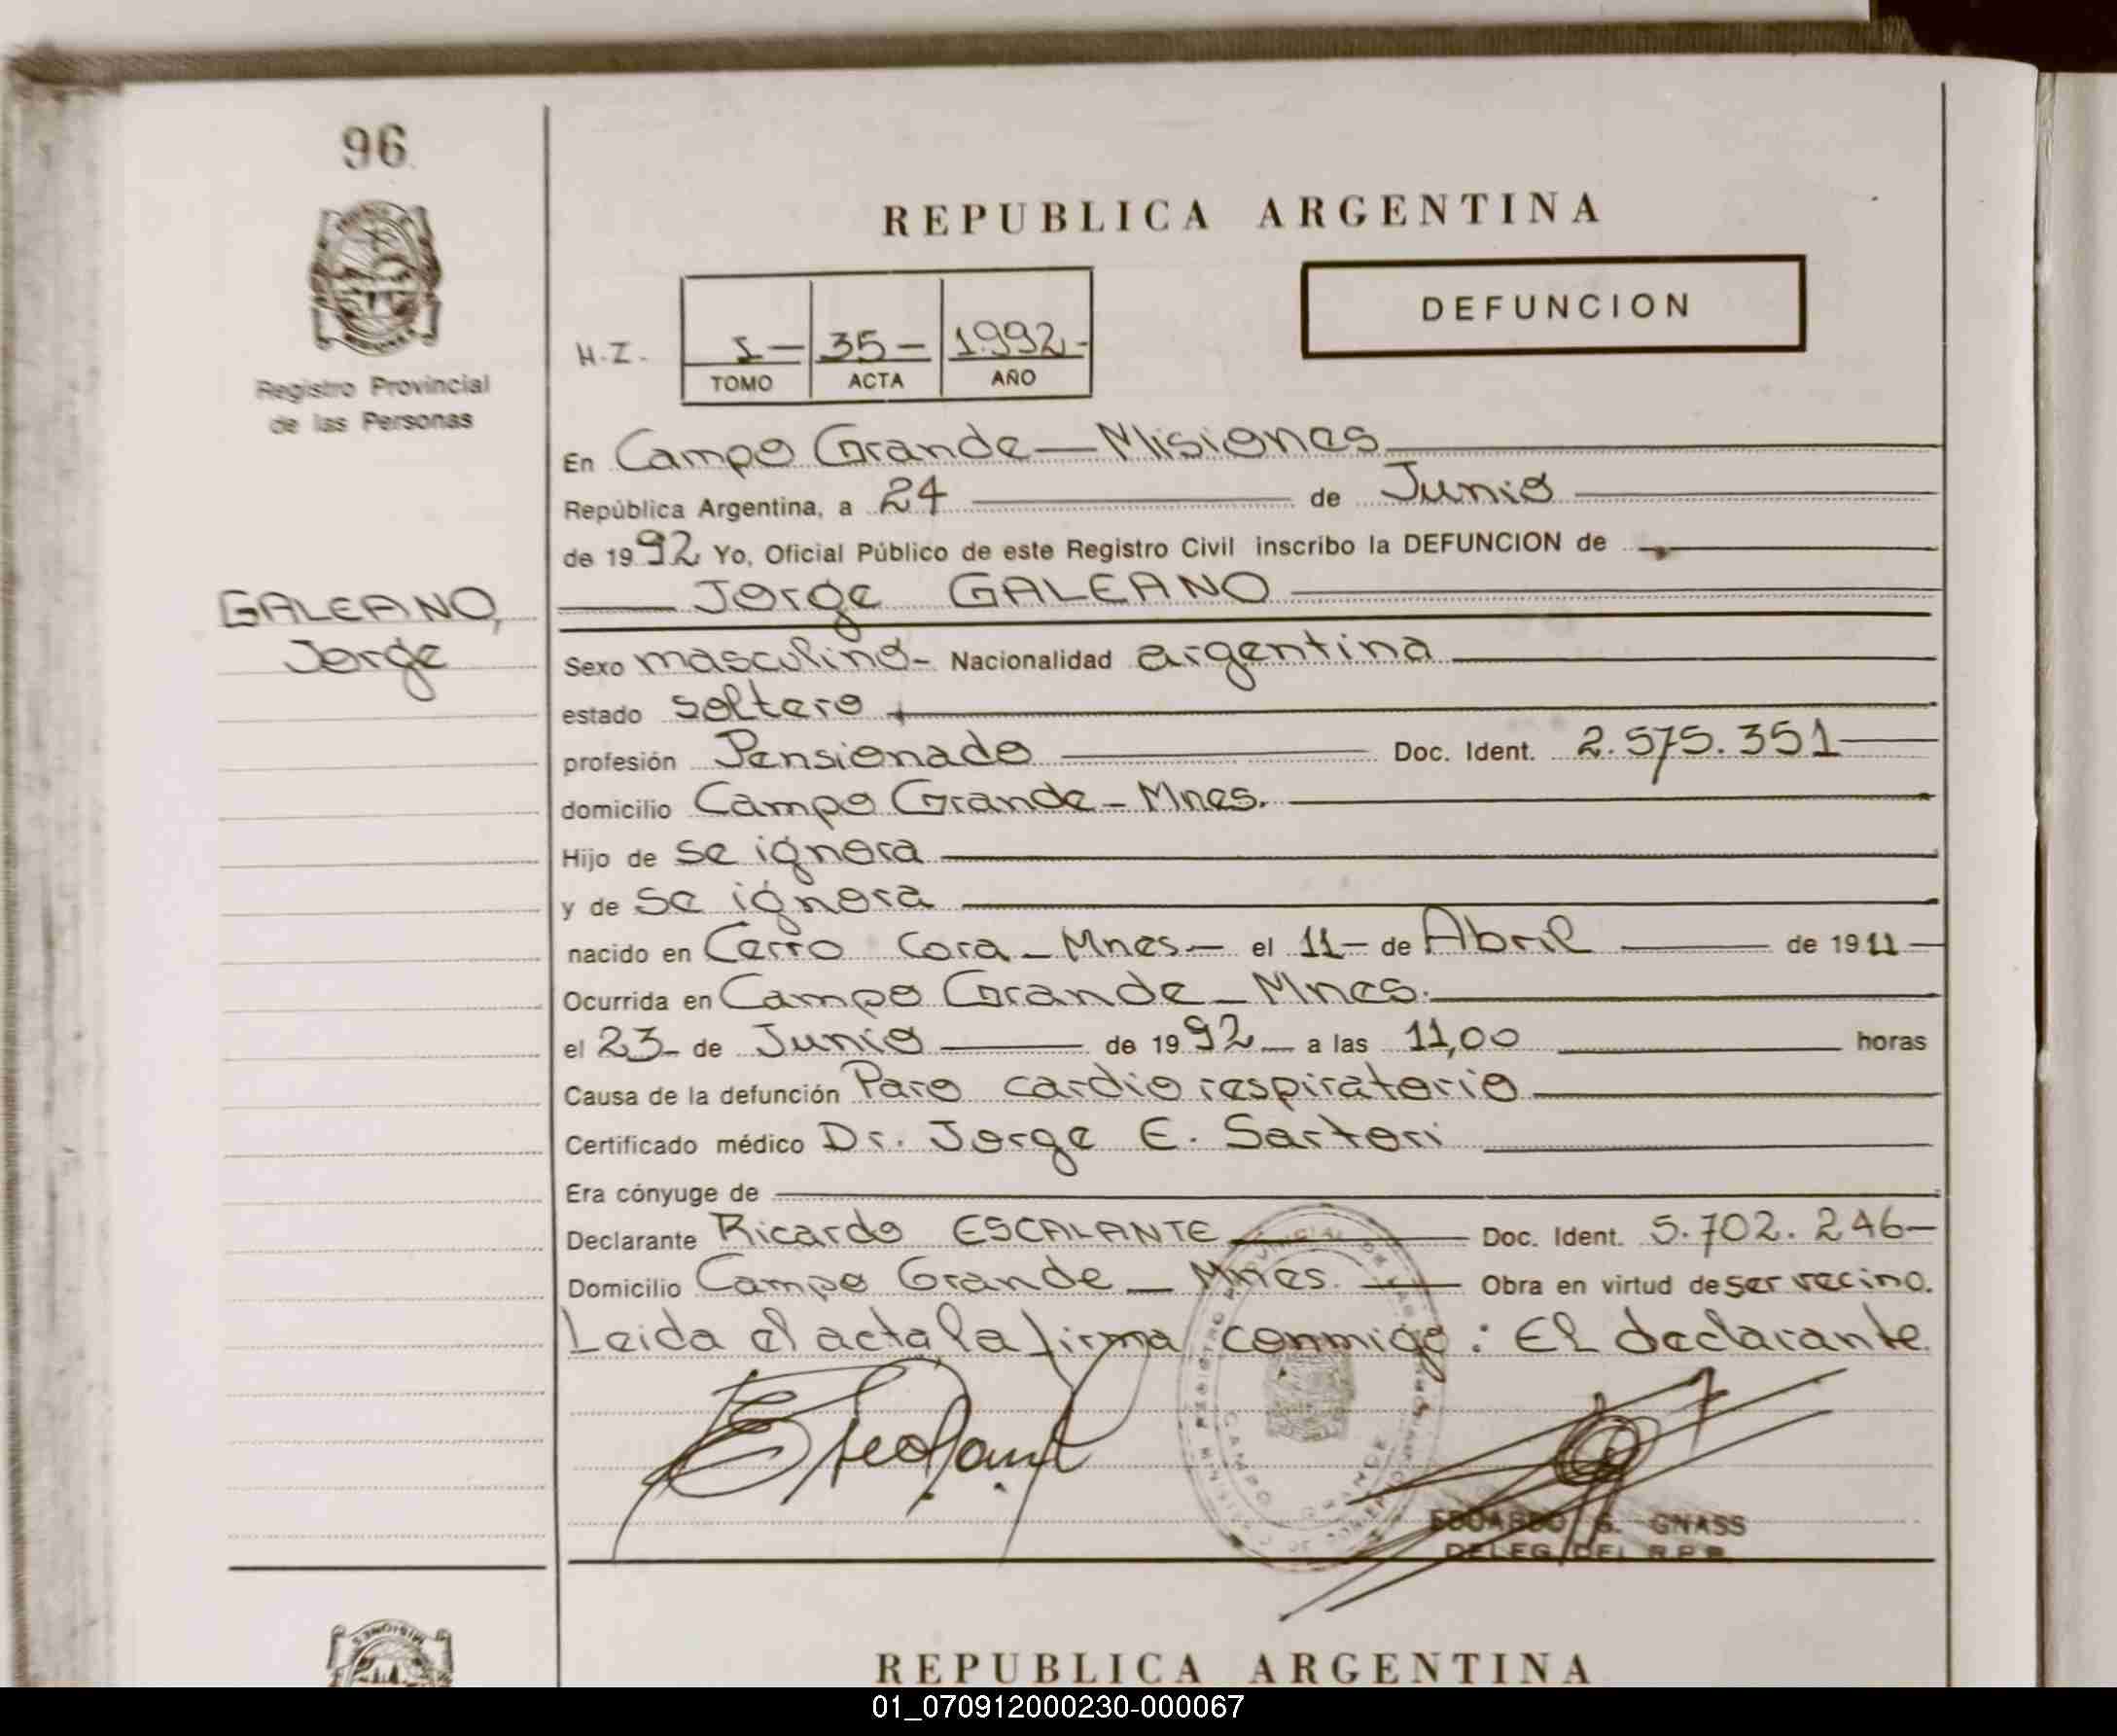 96
REPUBLICA ARGENTINA
DEFUNCION
H.Z. 1- 35- 1992-
TOMO ACTA AÑO
Registro Provincial
de las Personas
En Campo Grande - Misiones
República Argentina, a 24 de Junio
de 1992 Yo, Oficial Público de este Registro Civil inscribo la DEFUNCION de
GALEANO,
Jorge
Jorge GALEANO
Sexo masculino- Nacionalidad argentina
estado soltero
profesión Pensionado Doc. Ident. 2.575.351
domicilio Campo Grande - Mnes.
Hijo de se ignora
y de se ignora
nacido en Cerro Cora - Mnes - el 11- de Abril de 1911
Ocurrida en Campo Grande - Mnes.
el 23- de Junio de 1992 a las 11,00 horas
Causa de la defunción Paro cardio respiratorio
Certificado médico Dr. Jorge E. Sartori
Era cónyuge de
Declarante Ricardo ESCALANTE Doc. Ident. 5.702.246-
Domicilio Campo Grande - Mnes. Obra en virtud de ser vecino.
Leida el acta, la firma conmigo: El declarante
CAMPO GRANDE
EDUARDO G. GNASS
DELEG. DEL R.P.P.
MISIONES
REPUBLICA ARGENTINA
01_070912000230-000067